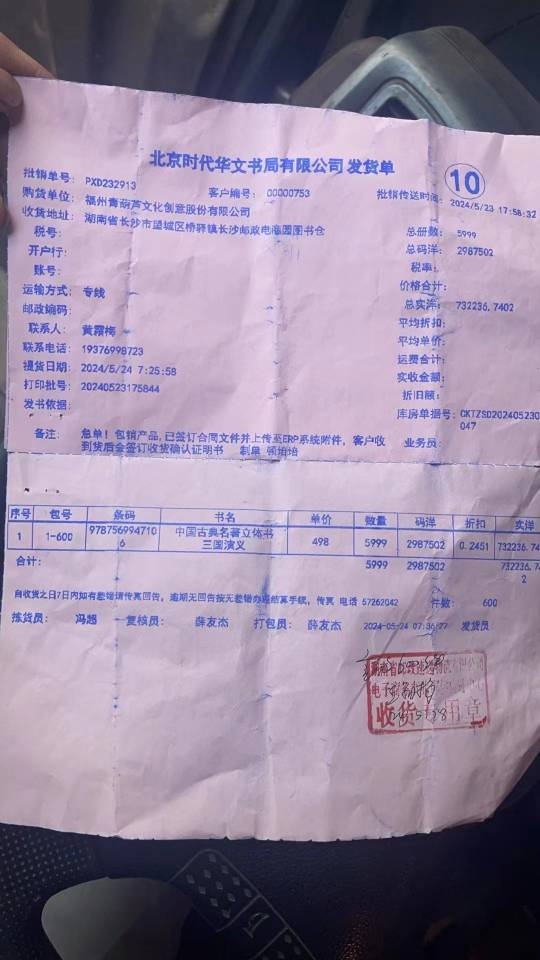 北京时代华文书局有限公司 发货单
10
批销单号: PXD232913 客户编号: 00000753 批销传送时间: 2024/5/23 17:58:32
购货单位: 福州青葫芦文化创意股份有限公司
收货地址: 湖南省长沙市望城区桥驿镇长沙邮政电商园图书仓 总册数: 5999
税号: 总码洋: 2987502
开户行: 税率:
账号: 价格合计:
运输方式: 专线 总实洋: 732236.7402
邮政编码: 平均折扣:
联系人: 黄霞梅 平均单价:
联系电话: 19376998723 运费合计:
提货日期: 2024/5/24 7:25:58 实收金额:
打印批号: 20240523175844 折旧额:
发书依据: 库房单据号: CKTZSD202405230
047
备注: 急单!包销产品,已签订合同文件并上传至ERP系统附件,客户收 业务员:
到货后会签订收货确认证明书 制单
序号 包号 条码 书名 单价 数量 码洋 折扣 实洋
1 1-600 9787569947106 中国古典名著立体书 三国演义 498 5999 2987502 0.2451 732236.74
合计: 5999 2987502 732236.7
2
自收货之日7日内如有差错请传真回告,逾期无回告按无差错办理结算手续,传真 电话 57262042 件数: 600
拣货员: 冯超 复核员: 薛友杰 打包员: 薛友杰 2024-05-24 07:36:27 发货员
收货专用章